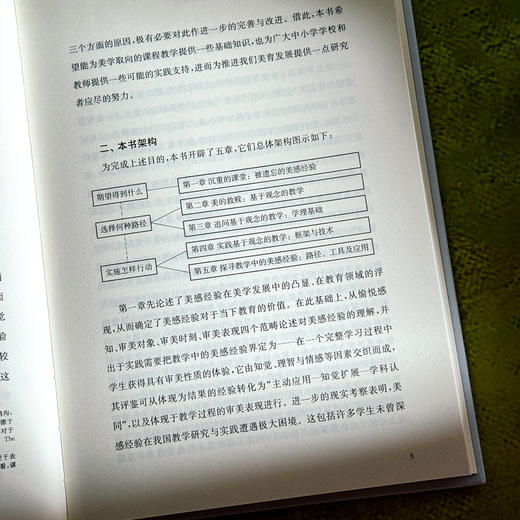 三个方面的原因，极有必要对此作进一步的完善与改进。借此，本书希
望能为美学取向的课程教学提供一些基础知识，也为广大中小学学校和
教师提供一些可能的实践支持，进而为推进我们美育发展提供一点研究
者应尽的努力。
二、本书架构
为完成上述目的，本书开辟了五章，它们总体架构图示如下：
期望得到什么
选择何种路径
实施怎样行动
第一章 沉重的课堂：被遗忘的美感经验
第二章 美的救赎：基于观念的教学
第三章 追问基于观念的教学：学理基础
第四章 实践基于观念的教学：框架与技术
第五章 探寻教学中的美感经验：路径、工具及应用
第一章先论述了美感经验在美学发展中的凸显、在教育领域的浮
现，从而确定了美感经验对于当下教育的价值。在此基础上，从愉悦感
知、审美对象、审美时刻、审美表现四个范畴论述对美感经验的理解，并
出于实践需要把教学中的美感经验界定为——在一个完整学习过程中
学生获得具有审美性质的体验，它由知觉、理智与情感等因素交织而成，
其评鉴可从体现为结果的经验转化为“主动应用—知觉扩展—学科认
同”，以及体现于教学过程的审美表现进行。进一步的现实考察表明，美
感经验在我国教学研究与实践遭遇极大困境。这包括许多学生未曾深
5
而
面
觉
验
较
这
鸿沟，
德于
对于
The
于表
看，课